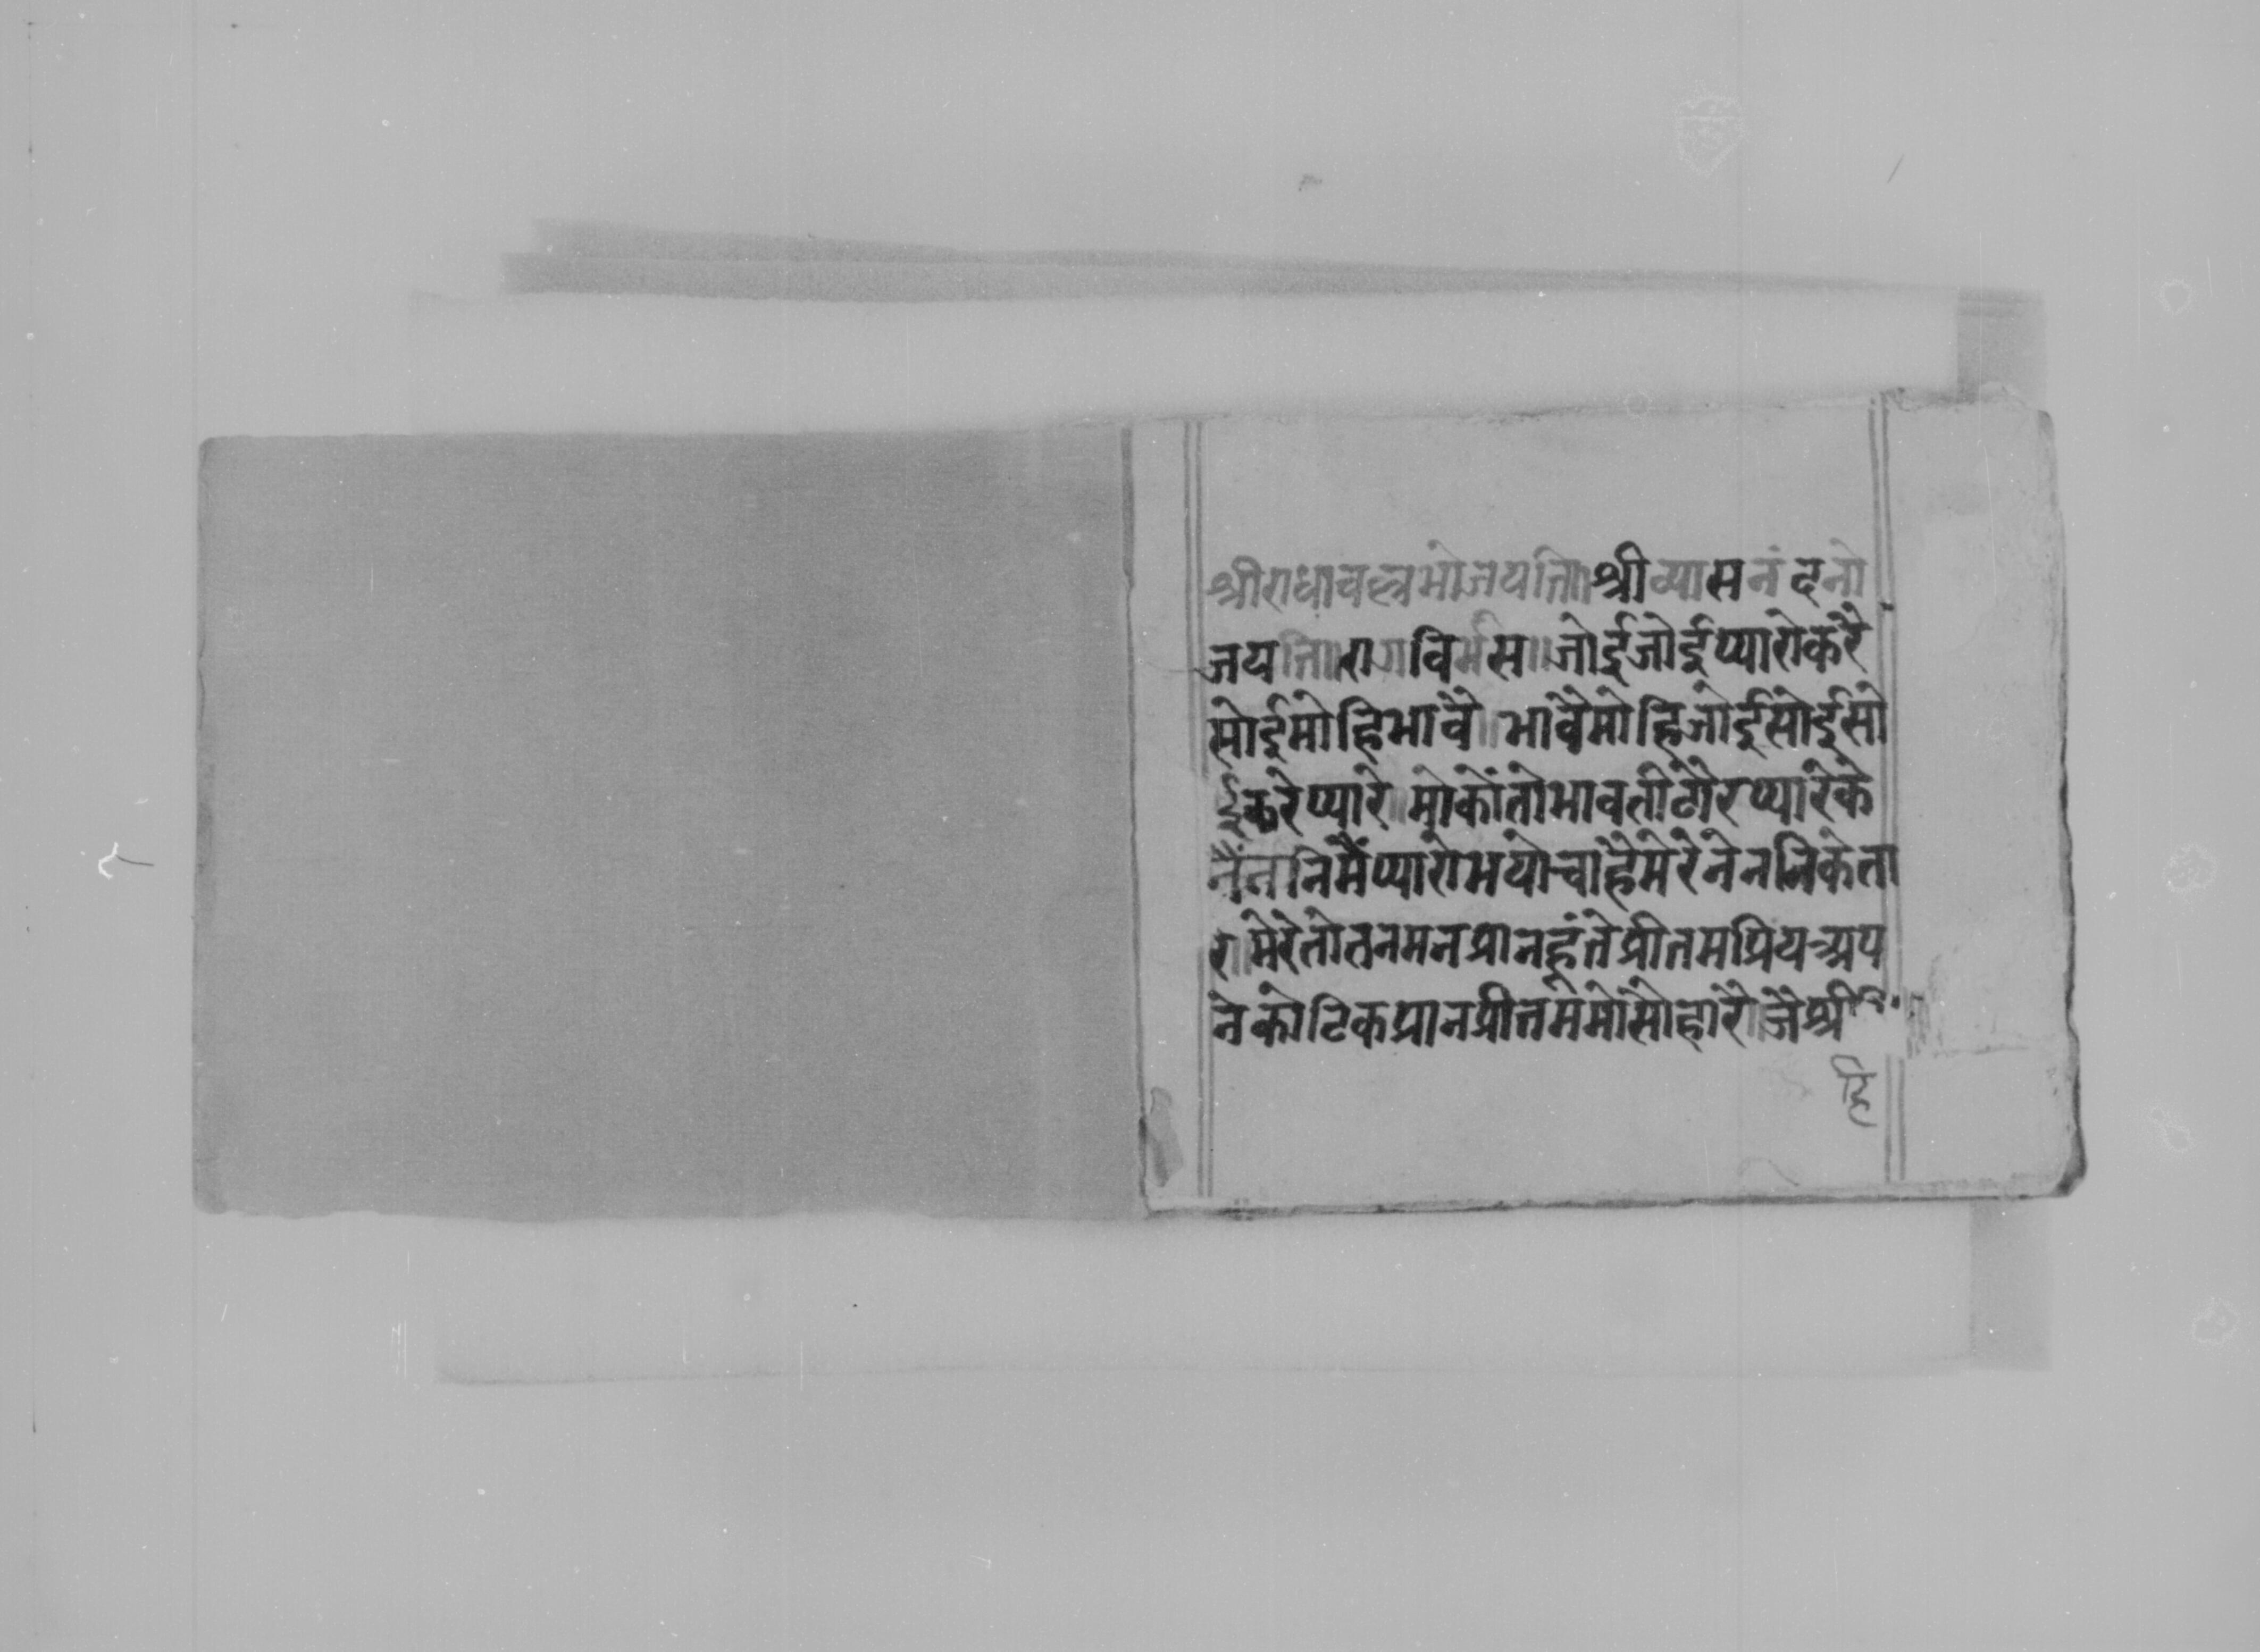 श्रीराधावल्लभोजयति॥श्रीव्यासनंदनो
जयति॥रागविभास॥जोईजोईप्यारोकरै
सोईमोहिभावै॥भावैमोहिजोईसोईसो
ईकरेप्यारे॥मोकोंतोभावतीठौरप्यारेके
नैंननिमैंप्यारोभयोचाहैमेरेनेननिकेता
रे॥मेरेतोतनमनप्रानहूंतेप्रीतमप्रियअप
नेकोटिकप्रानप्रीतममोसोहारे॥जैश्री
हि